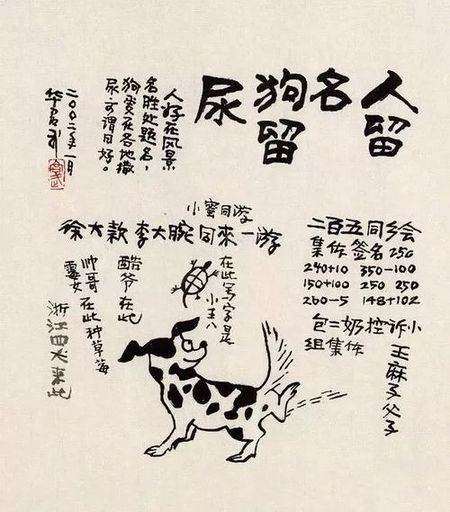 人留
名
狗留
尿
人好在风景
名胜处题名，
狗爱在各地撒
尿，可谓同好。
二〇〇二年一月
华君武
小蜜同游
徐大款 李大腕 同来一游
二百五同乡绘
集体签名 250
240+10 350-100
150+100 250 250
260-5 148+102
包二奶控诉小
组集体
王麻子父子
在此写字是
小王八
酷爷在此
帅哥
靓女在此种草莓
浙江四犬来此